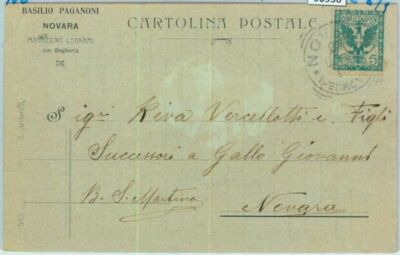 BASILIO PAGANONI
NOVARA
MAGAZZINO LEGNAMI
con Segheria
CARTOLINA POSTALE
Sigri Riva Vercellotti e Figli
Successori a Gallo Giovanni
B. S. Martino
Novara